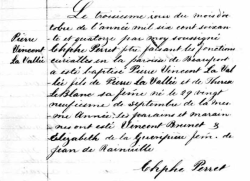 Le troisieme jour du mois d'oc
tobre de l'année mil six cent soixan
te et quatorze par moy soussigné
Pierre
Vincent
La Vallée
Chphe Perret ptre faisant les fonctions
curialles en la paroisse de Beauport
a esté baptisé Pierre Vincent La Val
lée fils de Pierre La Vallée et de Therese
Le Blanc sa feme né le 29 vingt
neufieme de septembre de la mes
me Année: les parains et marain
nes ont esté Vincent Brunet &
Elizabeth de la feme. de
Jean de Rainville
Chphe Perret